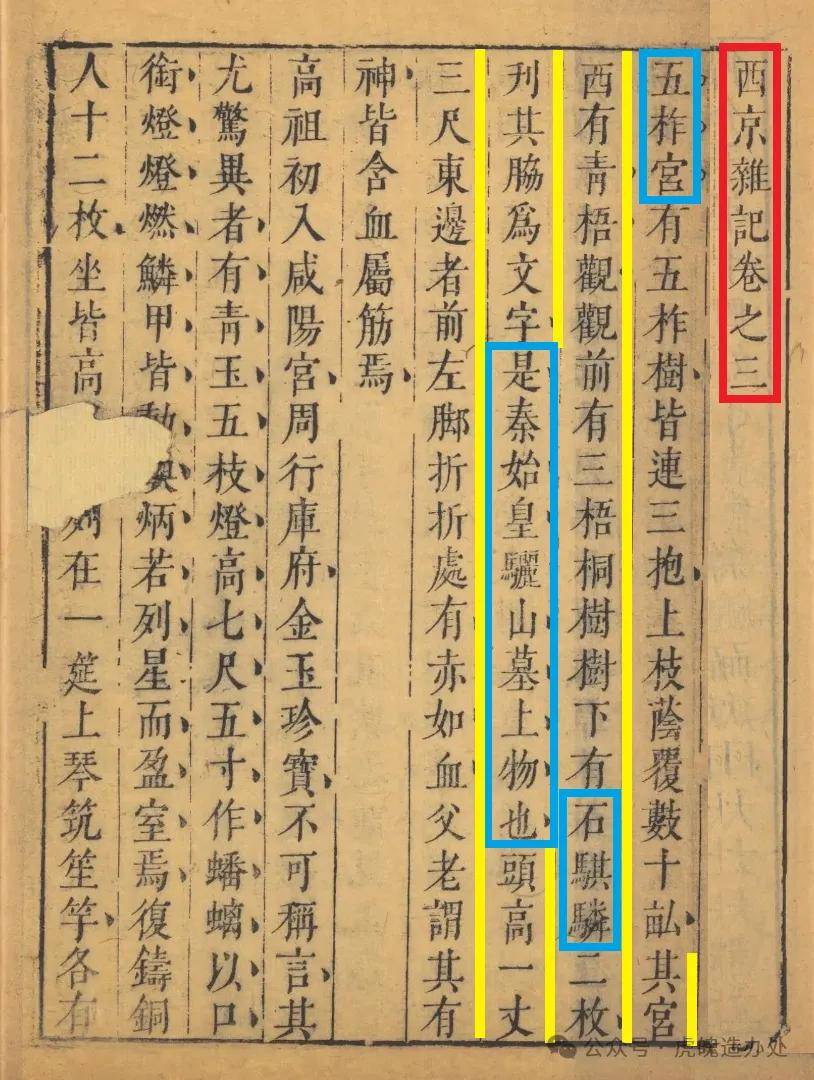 西京雜記卷之三
五柞宮有五柞樹皆連三抱上枝蔭覆數十畝其宮
西有青梧觀觀前有三梧桐樹樹下有石騏驎二枚
刋其脇爲文字是秦始皇驪山墓上物也頭高一丈
三尺東邊者前左脚折折處有赤如血父老謂其有
神皆含血屬筋焉
高祖初入咸陽宮周行庫府金玉珍寶不可稱言其
尤驚異者有青玉五枝燈高七尺五寸作蟠螭以口
銜燈燈燃鱗甲皆動炳若列星而盈室焉復鑄銅
人十二枚坐皆高在一筵上琴筑笙竽各有
公众号·虎魄造办处